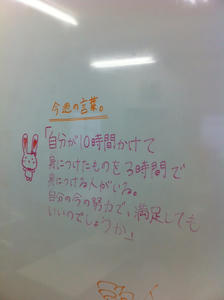 今週の言葉。
「自分が10時間かけて
身につけたものを3時間で
身につける人がいる。
自分の今の努力で、満足しても
いいのでしょうか」